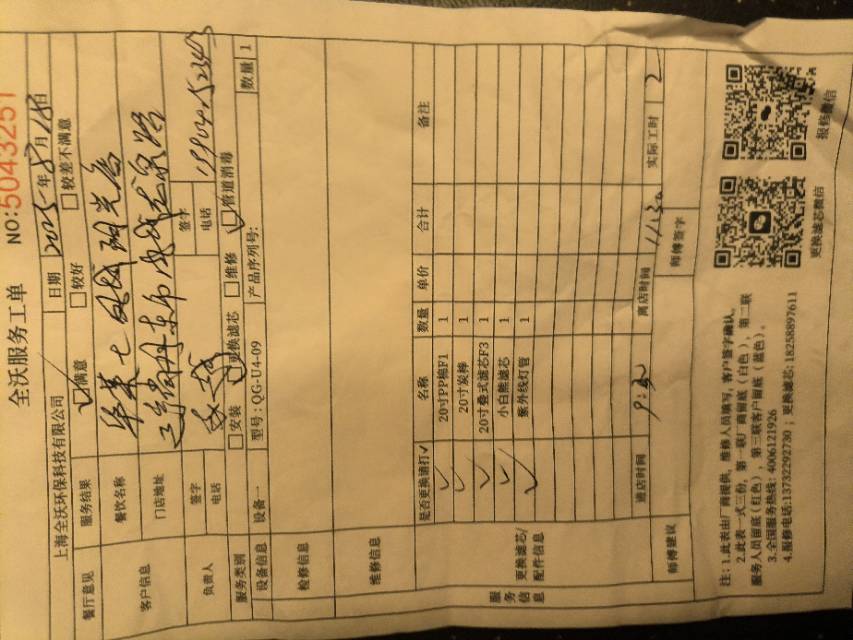 全沃服务工单
NO:5043251
上海全沃环保科技有限公司 日期 2025年8月18日
餐厅意见 服务结果 ☑满意 □较好 □较差不满意
客户信息 餐饮名称
门店地址
负责人 签字 签字
电话 电话
服务类别 □安装 ☑更换滤芯 □维修 ☑管道消毒
设备信息 设备一 型号：QG-U4-09 产品序列号： 数量 1
检修信息
维修信息
服务信息 更换滤芯/配件信息 是否更换请打✓ 名称 数量 单价 合计 备注
✓ 20寸PP棉F1 1
✓ 20寸炭棒 1
✓ 20寸叠式滤芯F3 1
✓ 小白熊滤芯 1
✓ 紫外线灯管 1
进店时间 9:30 离店时间 11:30 实际工时 2
师傅建议 师傅签字
注：1.此表由厂商提供，维修人员填写，客户签字确认。
2.此表一式三份，第一联厂商留底（白色），第二联
服务人员留底（红色），第三联客户留底（蓝色）。
3.全国服务热线：4006121926
4.报修电话:13732292730；更换滤芯:18258897611
更换滤芯微信 报修微信